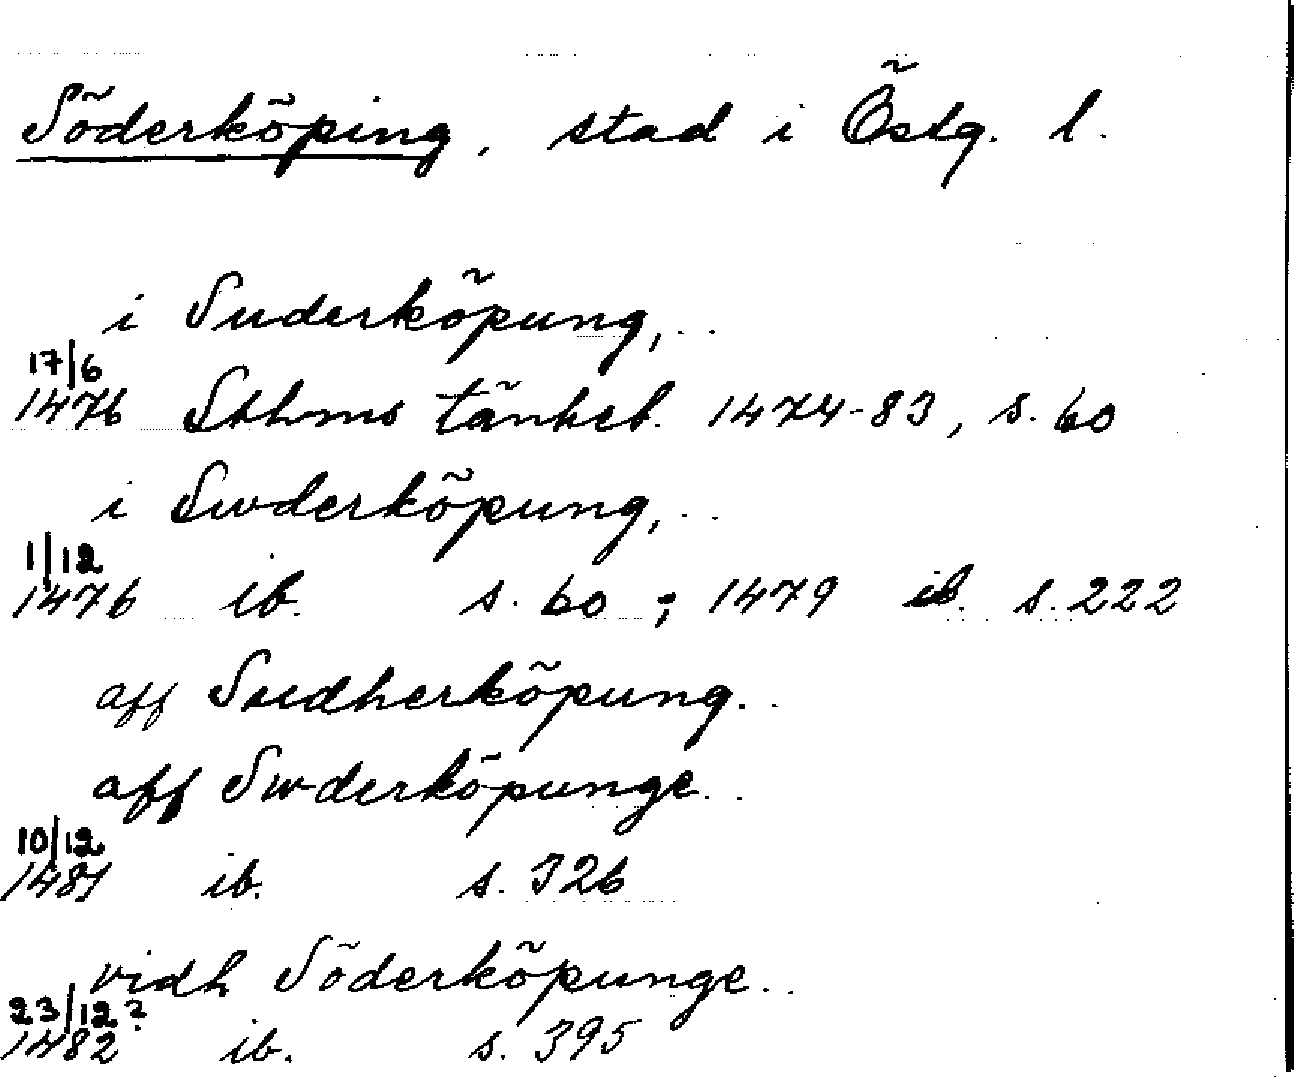 Söderköping, stad i Östg. l.
i Suderköpung,..
17/6
1476 Sthms tänkeb. 1474-83, s. 60
i Swderköpung,..
1/12
1476 ib. s. 60 ; 1479 ib. s. 222
aff Sudherköpung..
aff Swderköpunge..
10/12
1481 ib. s. 326
vidh Söderköpunge..
23/12?
1482 ib. s. 395